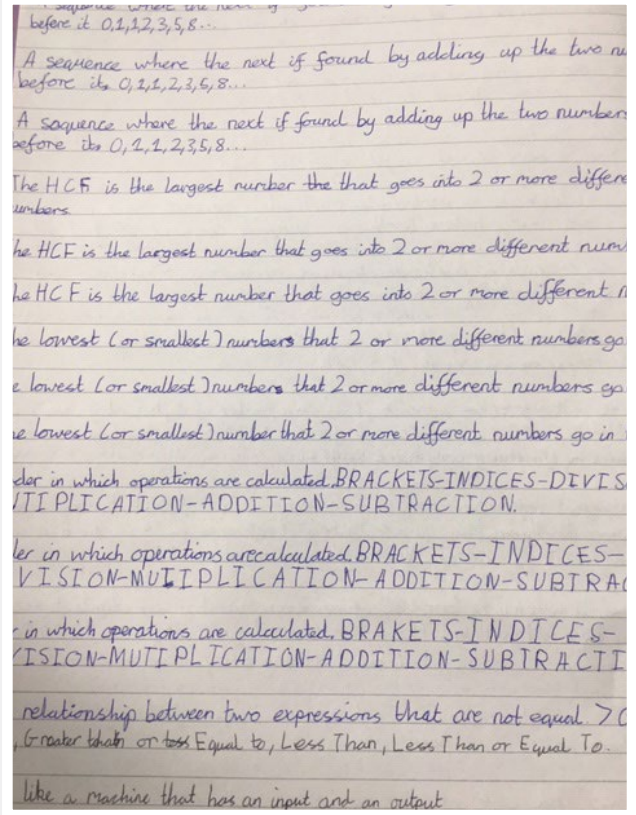 before it 0,1,1,2,3,5,8...
A sequence where the next if found by adding up the two nu
before its 0,1,1,2,3,5,8...
A saquence where the next if found by adding up the two number
before its 0,1,1,2,3,5,8...
The HCF is the largest number the that goes into 2 or more differe
umbers
he HCF is the largest number that goes into 2 or more different num
he HCF is the largest number that goes into 2 or more different n
he lowest (or smallest) numbers that 2 or more different numbers go
e lowest (or smallest) numbers that 2 or more different numbers go
e lowest (or smallest) number that 2 or more different numbers go in
der in which operations are calculated. BRACKETS-INDICES-DIVIS
UTIPLICATION-ADDITION-SUBTRACTION.
der in which operations are calculated. BRACKETS-INDICES-
VISION-MUTIPLICATION-ADDITION-SUBTRAC
r in which operations are calculated. BRAKETS-INDICES-
VISION-MUTIPLICATION-ADDITION-SUBTRACTI
relationship between two expressions that are not equal. >
, Greater than or Equal to, Less Than, Less Than or Equal To.
like a machine that has an input and an output